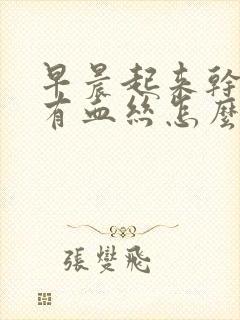 早晨起来幹
有血丝怎麼
張燮飛